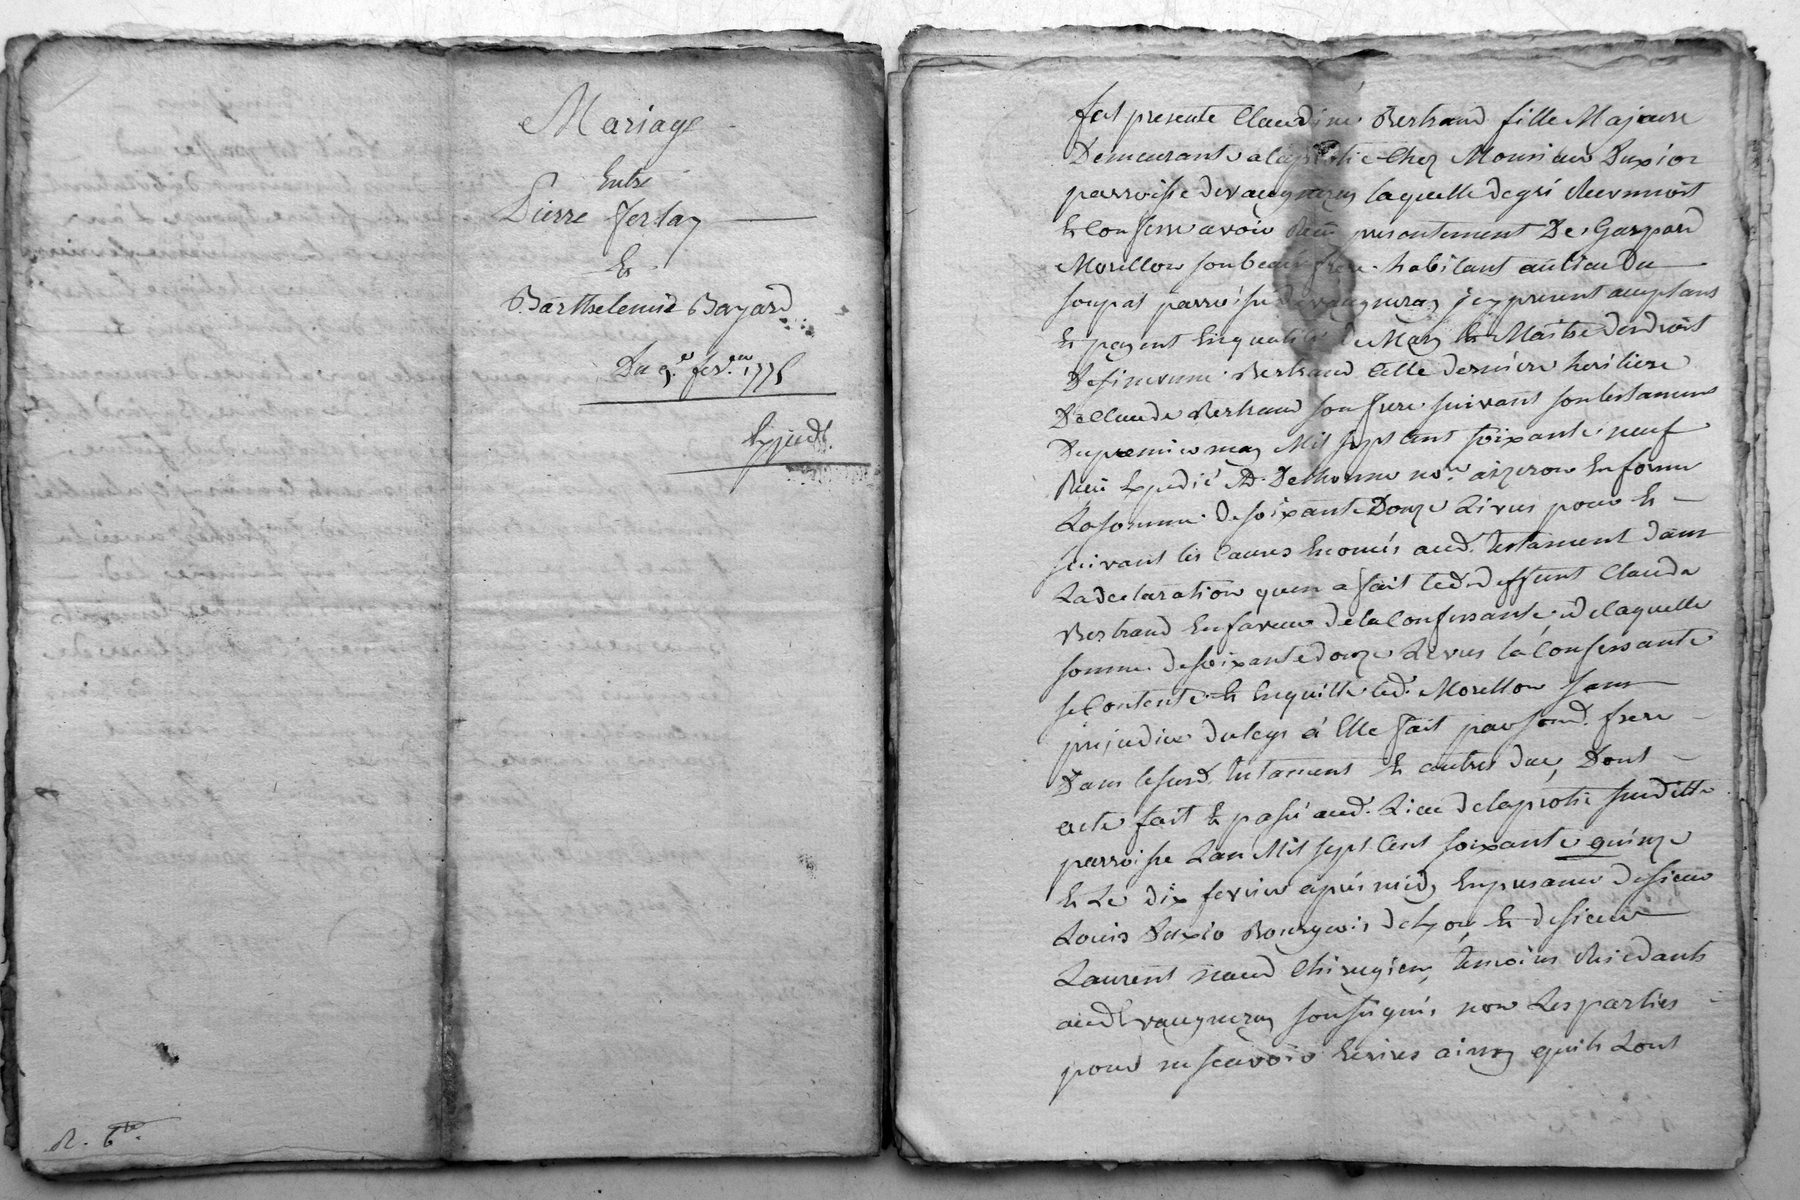 Mariage
Entre
Pierre Ferlay
Et
Barthelemie Bayard
Du 9e fer.er 1775
Expedt.
R. 6 lb.
fut presente Claudine Bertrand fille Majeure
Demeurante a la chez Monsieur Duxior
parroisse de vaugneray laquelle de gré
et Confesse avoir Reçu presentement De Gaspard
Morillon son beau frere habitant au lieu Du
soupat parroisse de vaugneray icy present acceptans
et payant En qualité de Mary et Maitre des droits
Bertrand Cette derniere heritiere
De Claude Bertrand son frere suivant son testament
Du premier may Mil sept Cent soixante neuf
Reçu Expedié Me Delhorme no.re aizeron En forme
La somme de soixante Douze Livres pour Et
suivant les Causes Enoncés aud. testament Dans
La declaration quen a fait led. deffunt Claude
Bertrand En faveur de la Confessante de laquelle
somme de soixante douze Livres la Confessante
se Contente Et En quitte led. Morillon sans
prejudice du legs a Elle fait par sond. frere
Dans le susd. testament Et autres due, Dont
acte fait Et passé aud. Lieu de laprotie susditte
parroisse Lan Mil sept Cent soixante quinze
Et Le dix fevrier après midy En presance de sieur
Louis Duxio Bourgeois de Lyon Et de sieur
Laurent Chirugien, temoins Residants
aud. vaugneray soussignés non Les parties
pour ne scavoir Ecrires ainsy quils Lont